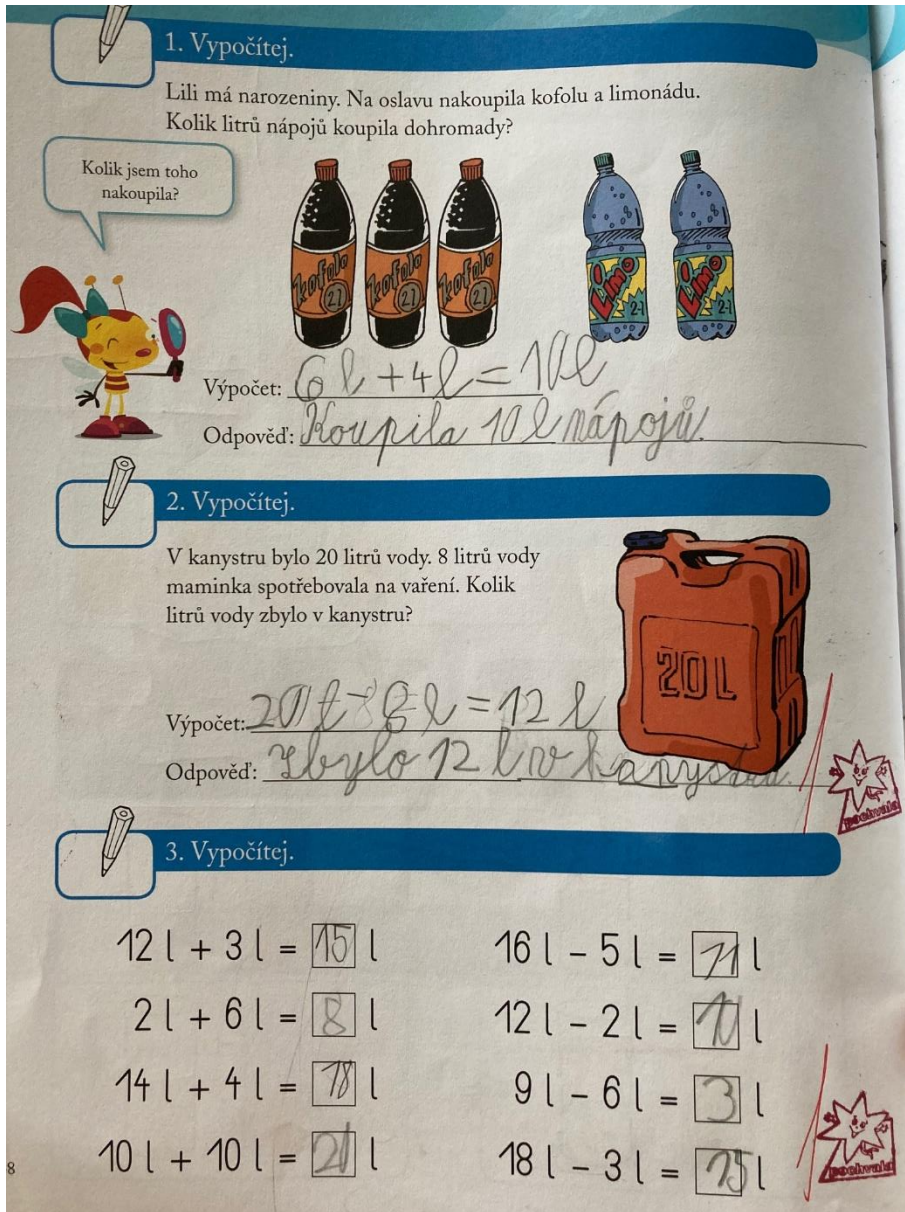 1. Vypočítej.
Lili má narozeniny. Na oslavu nakoupila kofolu a limonádu.
Kolik litrů nápojů koupila dohromady?
Kolik jsem toho
nakoupila?
kofola kofola kofola
2l 2l 2l
Limo Limo
2l 2l
Výpočet: 6 l + 4 l = 10 l
Odpověď: Koupila 10 l nápojů.
2. Vypočítej.
V kanystru bylo 20 litrů vody. 8 litrů vody
maminka spotřebovala na vaření. Kolik
litrů vody zbylo v kanystru?
20 L
Výpočet: 20 l - 8 l = 12 l
Odpověď: Zbylo 12 l v kanystru.
pochvala
3. Vypočítej.
12 l + 3 l = 15 l 16 l – 5 l = 11 l
2 l + 6 l = 8 l 12 l – 2 l = 10 l
14 l + 4 l = 18 l 9 l – 6 l = 3 l
10 l + 10 l = 20 l 18 l – 3 l = 15 l
pochvala
8